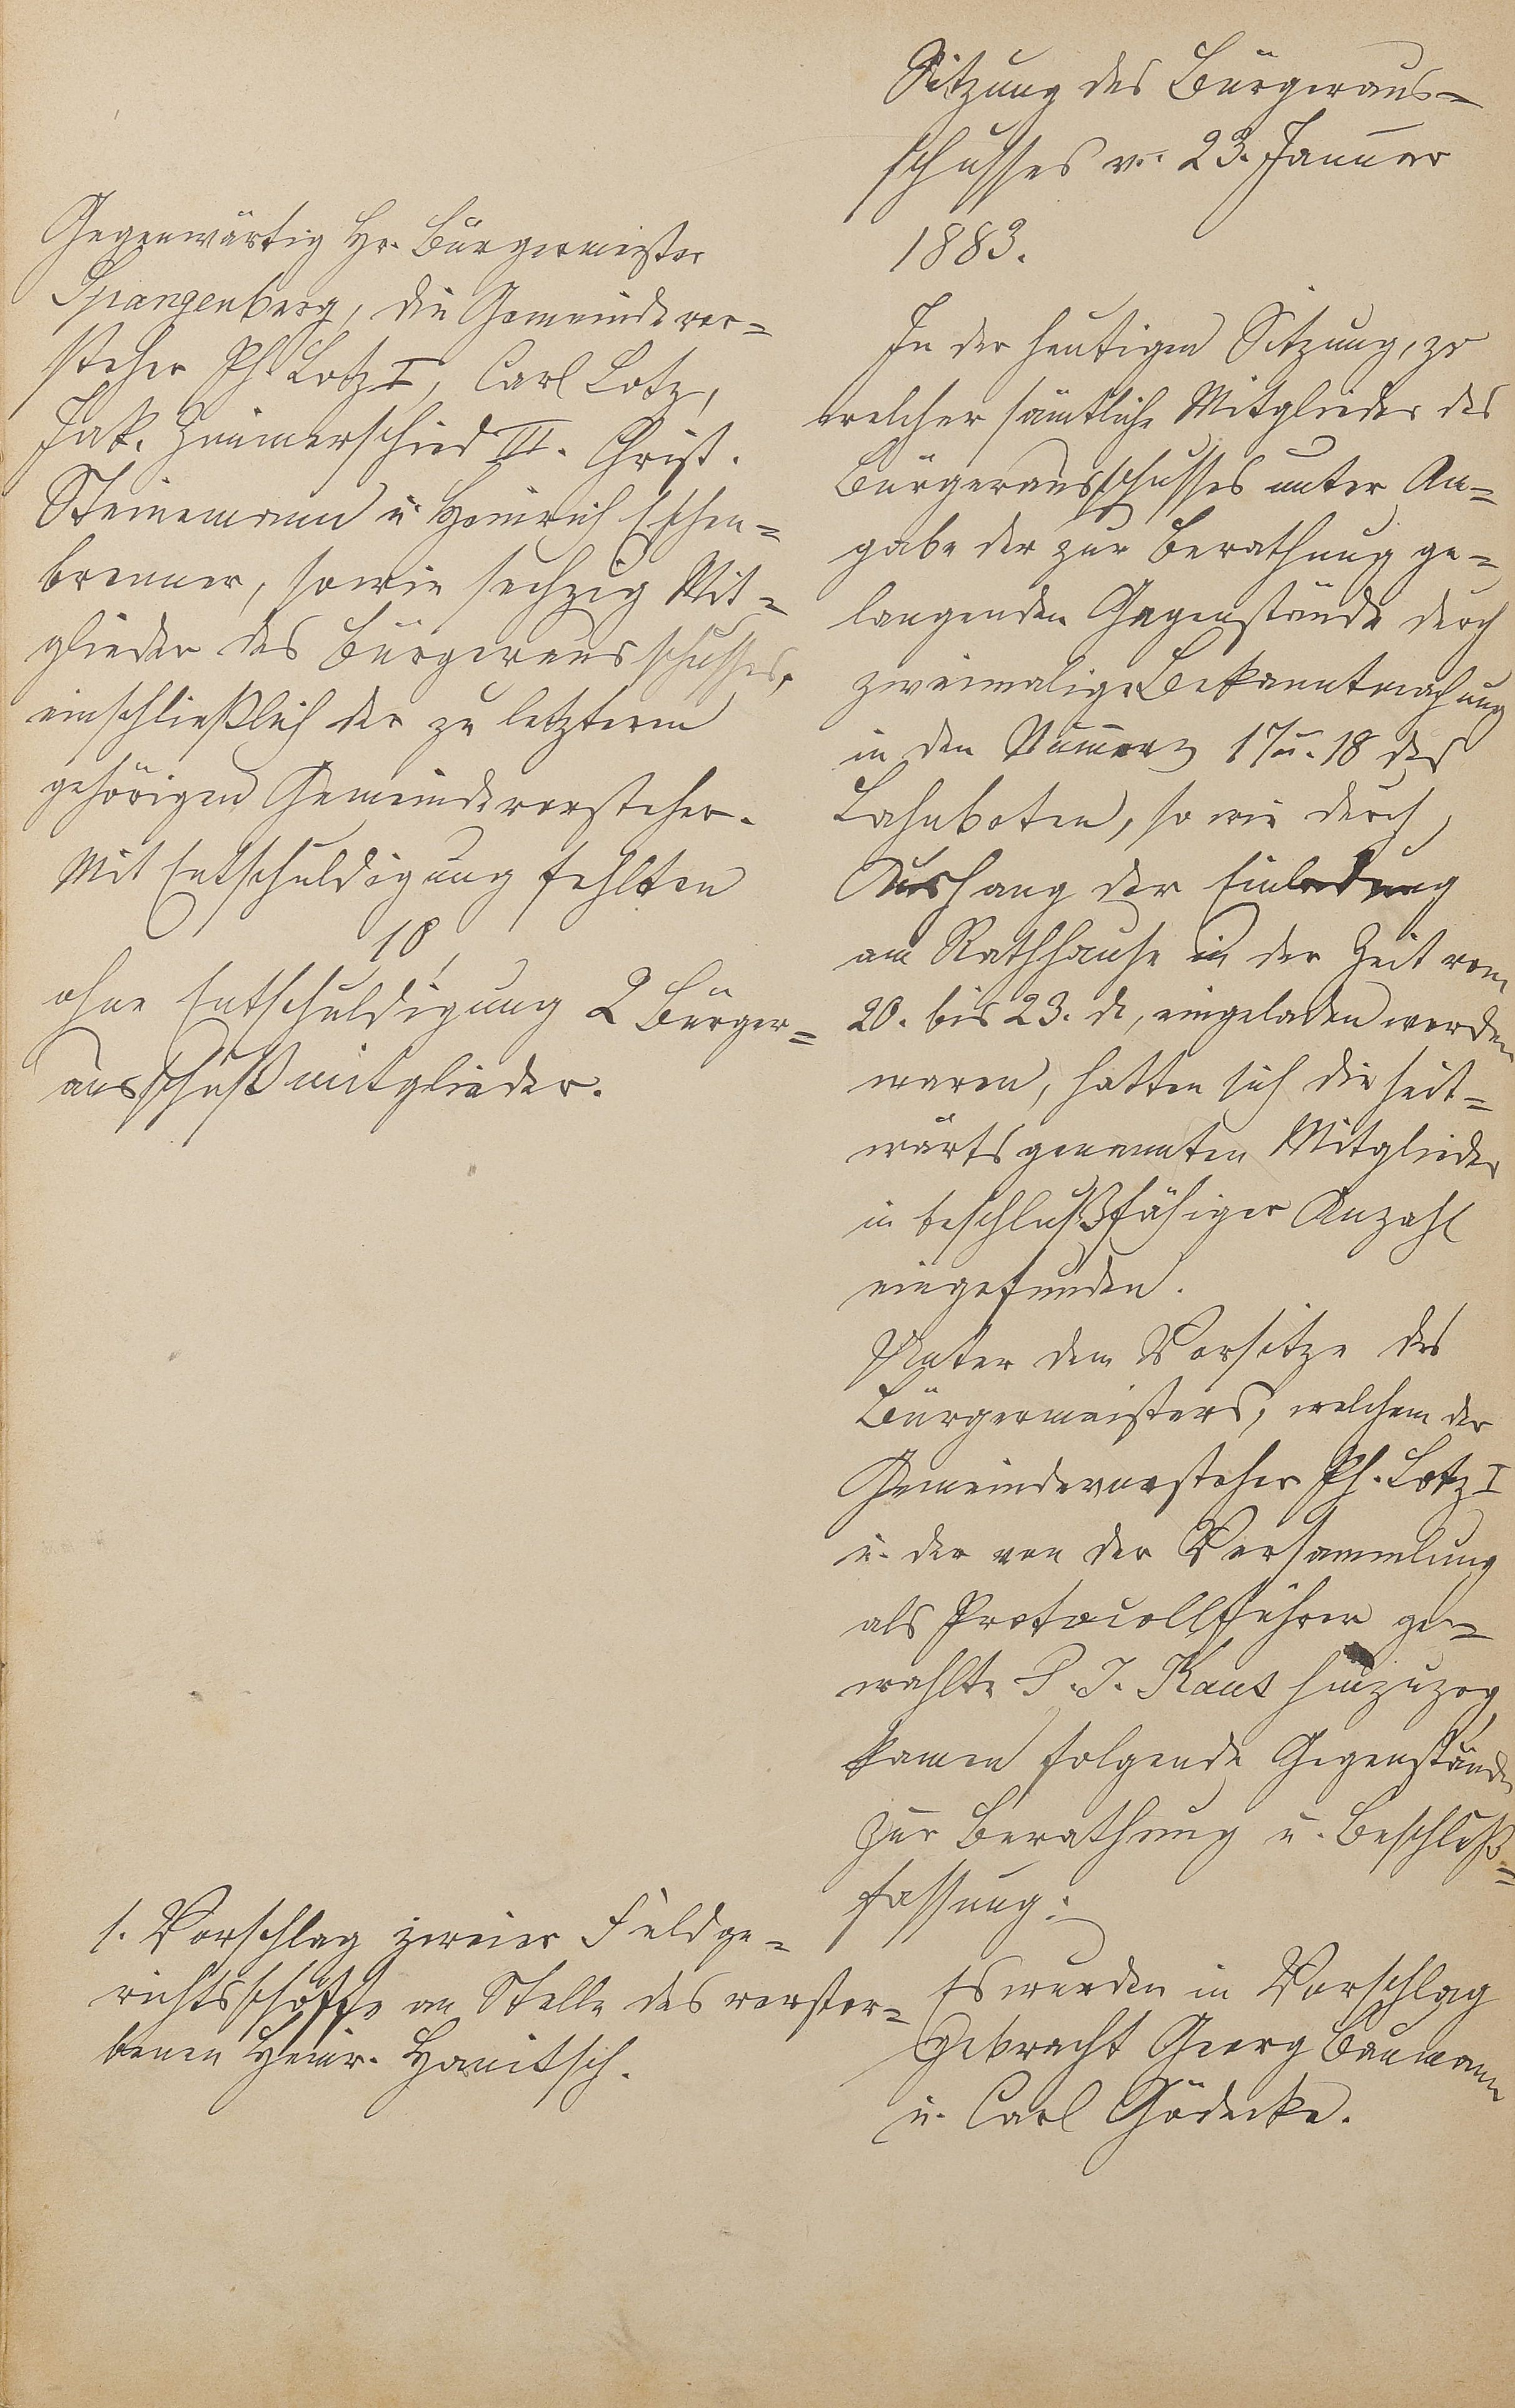 Sitzung des Bürgeraus-
schusses v. 23. Januar
1883.
Gegenwärtig Hr. Bürgermeister
Spangenberg, die Gemeindevor-
steher Ph. Lotz I, Carl Lotz,
Jak. Zimmerschied III. Christ.
Steinemann u Heinrich Eschen-
brenner, sowie sechzig Mit-
glieder des Bürgerausschusses,
einschließlich der zu letzterem
gehörigen Gemeindevorsteher.
Mit Entschuldigung fehlten
10,
ohne Entschuldigung 2 Bürger-
ausschußmitglieder.
In der heutigen Sitzung, zu
welcher sämtliche Mitglieder des
Bürgerausschusses unter An-
gabe der zur Berathung ge-
langenden Gegenstände durch
zweimalige Bekanntmachung
in den Nummern 17 u. 18 des
Lahnboten, so wie durch
Aushang der Einladung
am Rathhause in der Zeit vom
20. bis 23. d, eingeladen worden
waren, hatten sich die seit-
wärts genannten Mitglieder
in beschlußfähiger Anzahl
eingefunden.
Unter dem Vorsitze des
Bürgermeisters, welchem der
Gemeindevorsteher Ph. Lotz I
u. der von der Versammlung
als Protocollführer ge-
wählte P. J. Kaus hinzuzog,
kamen folgende Gegenstände
zur Berathung u. Beschluß-
fassung:
1. Vorschlag zweier Feldge-
richtsschöffe an Stelle des verstor-
benen Heinr. Hanitsch.
Es wurden in Vorschlag
gebracht Georg Baumann
u. Carl Gödecke.